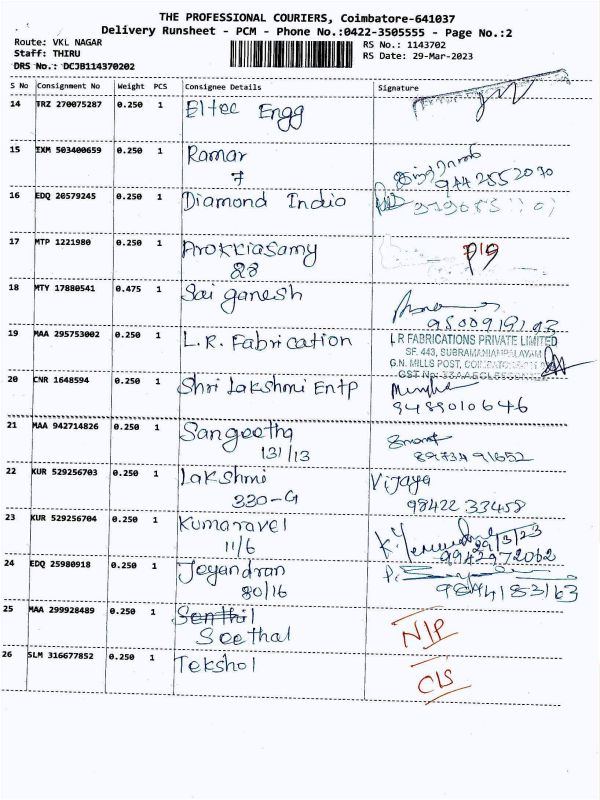 THE PROFESSIONAL COURIERS, Coimbatore-641037
Delivery Runsheet - PCM - Phone No.:0422-3505555 - Page No.:2
Route: VKL NAGAR RS No.: 1143702
Staff: THIRU RS Date: 29-Mar-2023
DRS No.: DCJB114370202
S No Consignment No Weight PCS Consignee Details Signature
14 TRZ 270075287 0.250 1 Eltec Engg
15 EXM 503400659 0.250 1 Ramar
7 9442552070
16 EDQ 20579245 0.250 1 Diamond India
17 MTP 1221980 0.250 1 Arokkiasamy
28
18 MTY 17880541 0.475 1 Sai ganesh
19 MAA 295753002 0.250 1 L.R. Fabrication L R FABRICATIONS PRIVATE LIMITED
SF. 443, SUBRAMANIAMPALAYAM
G.N. MILLS POST,
20 CNR 1648594 0.250 1 Shri Lakshmi Entp
9489010646
21 MAA 942714826 0.250 1 Sangeetha
131/13 8973491652
22 KUR 529256703 0.250 1 Lakshmi Vijaya
330-G 98422 33458
23 KUR 529256704 0.250 1 Kumaravel 29/3/23
11/6 9942972062
24 EDQ 25980918 0.250 1 Jeyandran
80/16 9844183163
25 MAA 299928489 0.250 1 Senthil
Seethal N/P
26 SLM 316677852 0.250 1 Tekshol CLS